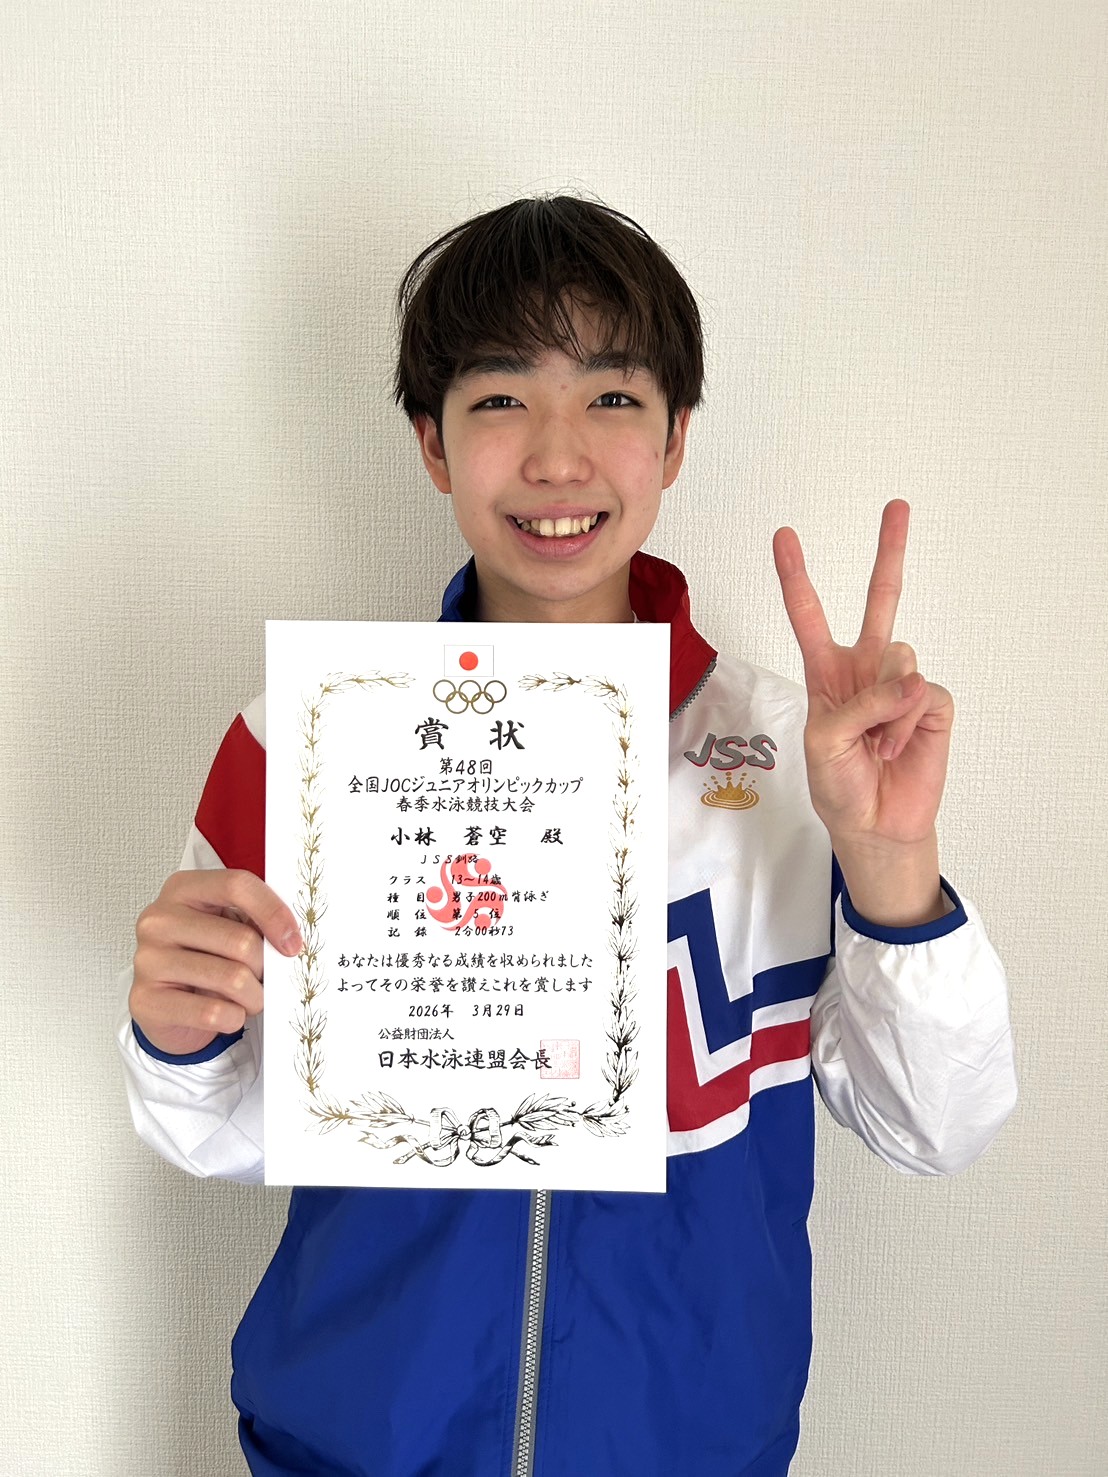 賞 状
第48回
全国JOCジュニアオリンピックカップ
春季水泳競技大会
小林 蒼空 殿
JSS釧路
クラス 13～14歳
種 目 男子200m背泳ぎ
順 位 第 5 位
記 録 2分00秒73
あなたは優秀なる成績を収められました
よってその栄誉を讃えこれを賞します
2026年 3月29日
公益財団法人
日本水泳連盟会長
JSS